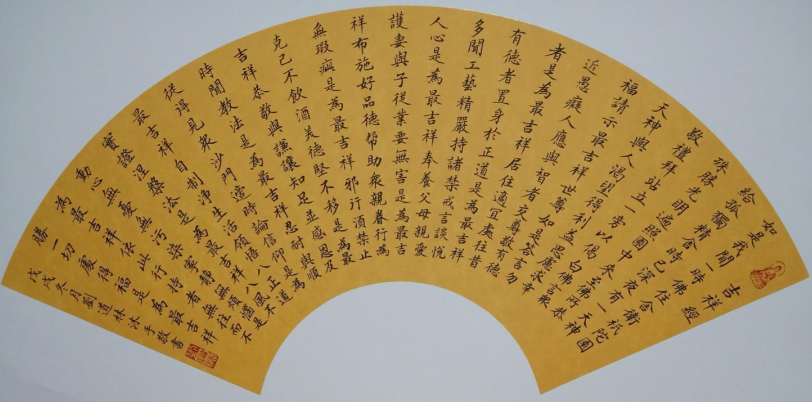 吉祥經
如是我聞一時佛住舍衛祇陀園
給孤獨精舍時已深夜有一天神
殊勝光明遍照園中來至佛所恭
敬禮拜站立一旁以偈白佛言眾
天神與人渴望得利益思慮求幸
福請示最吉祥世尊如是答言勿
近愚癡人應與智者交尊敬有德
者是為最吉祥居住適宜處往昔
有德者置身於正道是為最吉祥
多聞工藝精嚴持諸禁戒言談悅
人心是為最吉祥奉養父母親愛
護妻與子從業要無害是為最吉
祥布施好品德幫助眾親眷行為
無瑕疵是為最吉祥邪行須禁止
克己不飲酒美德堅不移是為最
吉祥恭敬與謙讓知足並感恩及
時聞教法是為最吉祥忍耐與順
從得見眾沙門適時論信仰是為
最吉祥自制淨生活領悟八正道
實證涅槃法是為最吉祥八風不
動心無憂無污染寧靜無煩惱是
為最吉祥依此行持者無往而不
勝一切處得福是為最吉祥
戊戌冬月劉道林沐手敬書